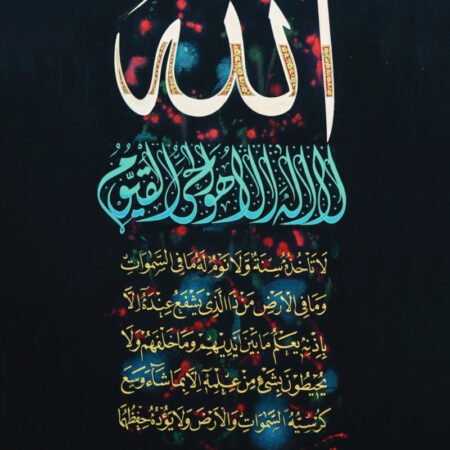 الله
لا اله الا هو الحي القيوم
لَا تَأْخُذُهُ سِنَةٌ وَّلَا نَوْمٌ لَهُ مَا فِي السَّمٰوَاتِ
وَمَا فِي الْاَرْضِ مَنْ ذَا الَّذِيْ يَشْفَعُ عِنْدَهٗ اِلَّا
بِاِذْنِهٖ يَعْلَمُ مَا بَيْنَ اَيْدِيْهِمْ وَمَا خَلْفَهُمْ وَلَا
يُحِيْطُوْنَ بِشَيْءٍ مِنْ عِلْمِهٖ اِلَّا بِمَا شَآءَ وَسِعَ
كُرْسِيُّهُ السَّمٰوَاتِ وَالْاَرْضَ وَلَا يَؤُدُهٗ حِفْظُهُمَا